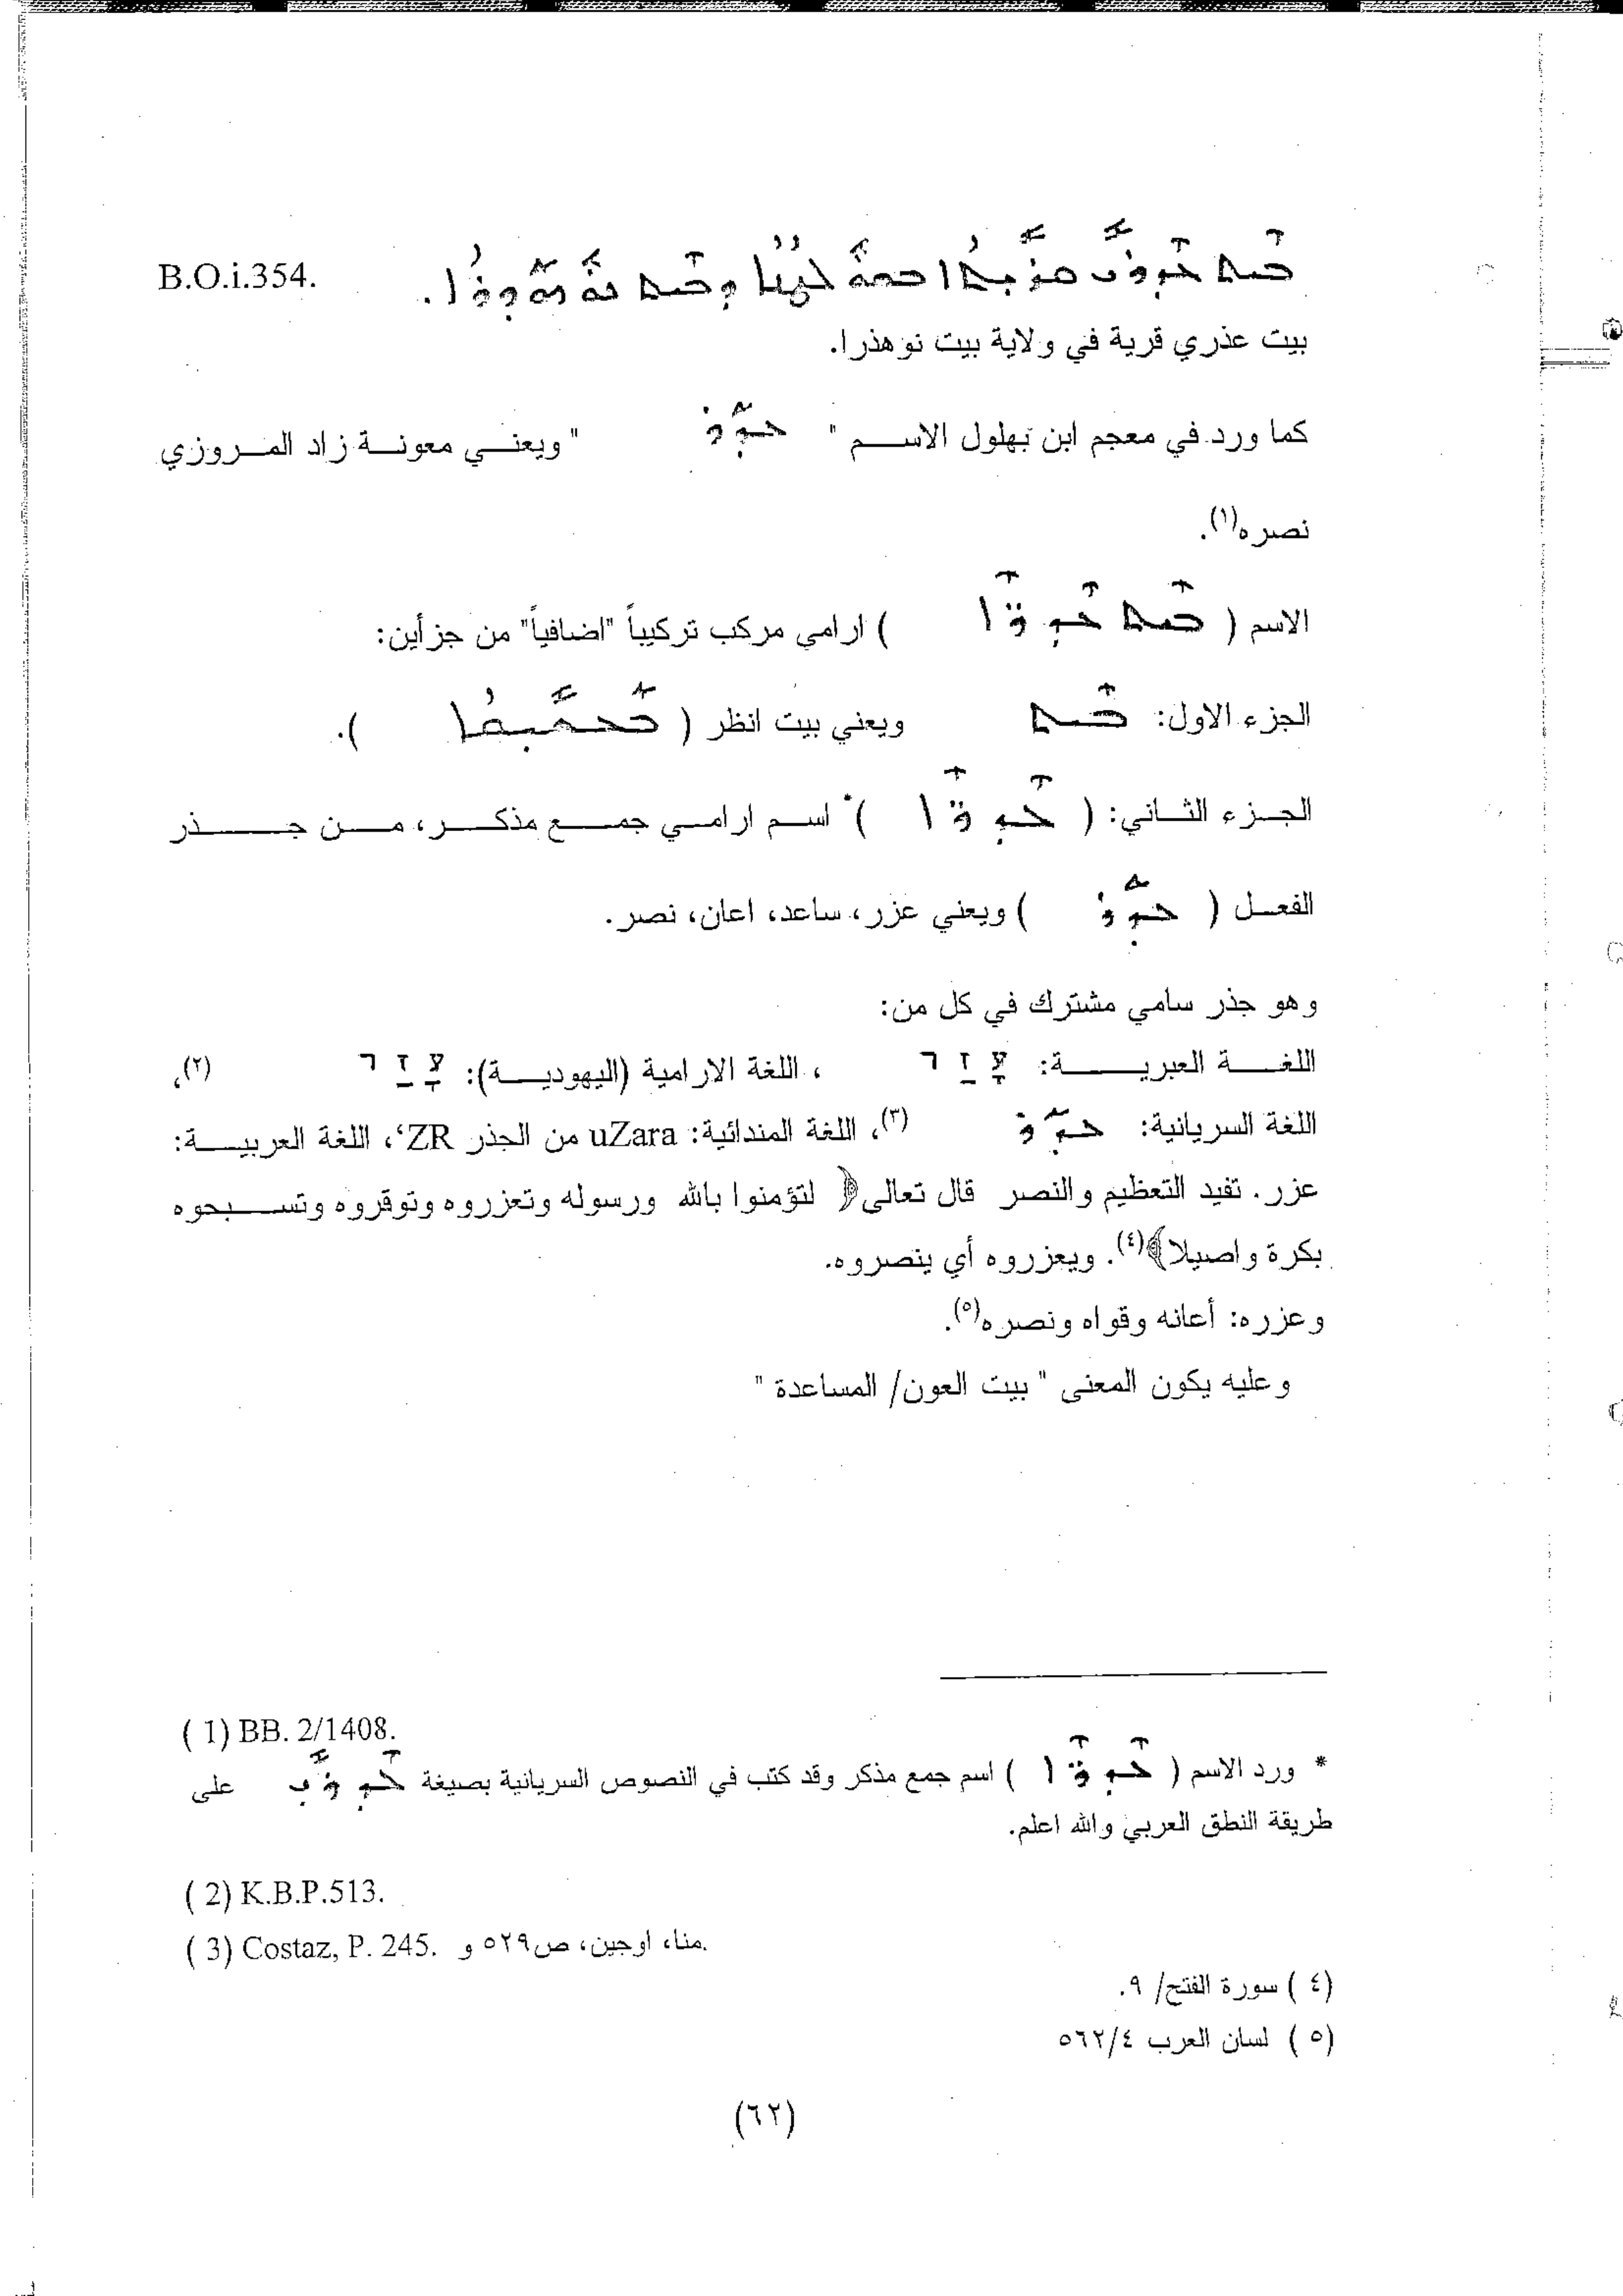 ܒܝܬ ܥܕܪܝ ܩܪܝܬܐ ܕܒܝܬ ܢܘܗܕܪܐ. B.O.i.354.
بيت عذري قرية في ولاية بيت نوهذرا.
كما ورد في معجم ابن بهلول الاسم " ܥܕܪ " ويعني معونة زاد المروزي
نصره(١).
الاسم ( ܒܝܬ ܥܕܪ̈ܐ ) ارامي مركب تركيباً "اضافياً" من جزأين:
الجزء الاول: ܒܝܬ ويعني بيت انظر ( ).
الجزء الثاني: ( ܥܕܪ̈ܐ )* اسم ارامي جمع مذكر، من جذر
الفعل ( ܥܕܪ ) ويعني عزر، ساعد، اعان، نصر.
وهو جذر سامي مشترك في كل من:
اللغة العبرية: עָזַר ، اللغة الارامية (اليهودية): עָזַר (٢)،
اللغة السريانية: ܥܕܪ (٣)، اللغة المندائية: uZara من الجذر ZR‘، اللغة العربية:
عزر. تفيد التعظيم والنصر قال تعالى﴿ لتؤمنوا بالله ورسوله وتعزروه وتوقروه وتسبحوه
بكرة واصيلا﴾(٤). ويعزروه أي ينصروه.
وعزره: أعانه وقواه ونصره(٥).
وعليه يكون المعنى " بيت العون/ المساعدة "
( 1) BB. 2/1408.
* ورد الاسم ( ܥܕܪ̈ܐ ) اسم جمع مذكر وقد كتب في النصوص السريانية بصيغة ܥܕܪܝ على
طريقة النطق العربي والله اعلم.
( 2) K.B.P.513.
( 3) Costaz, P. 245. منا، اوجين، ص٥٢٩ و.
(٤ ) سورة الفتح/ ٩.
(٥ ) لسان العرب ٥٦٢/٤
(٦٢)